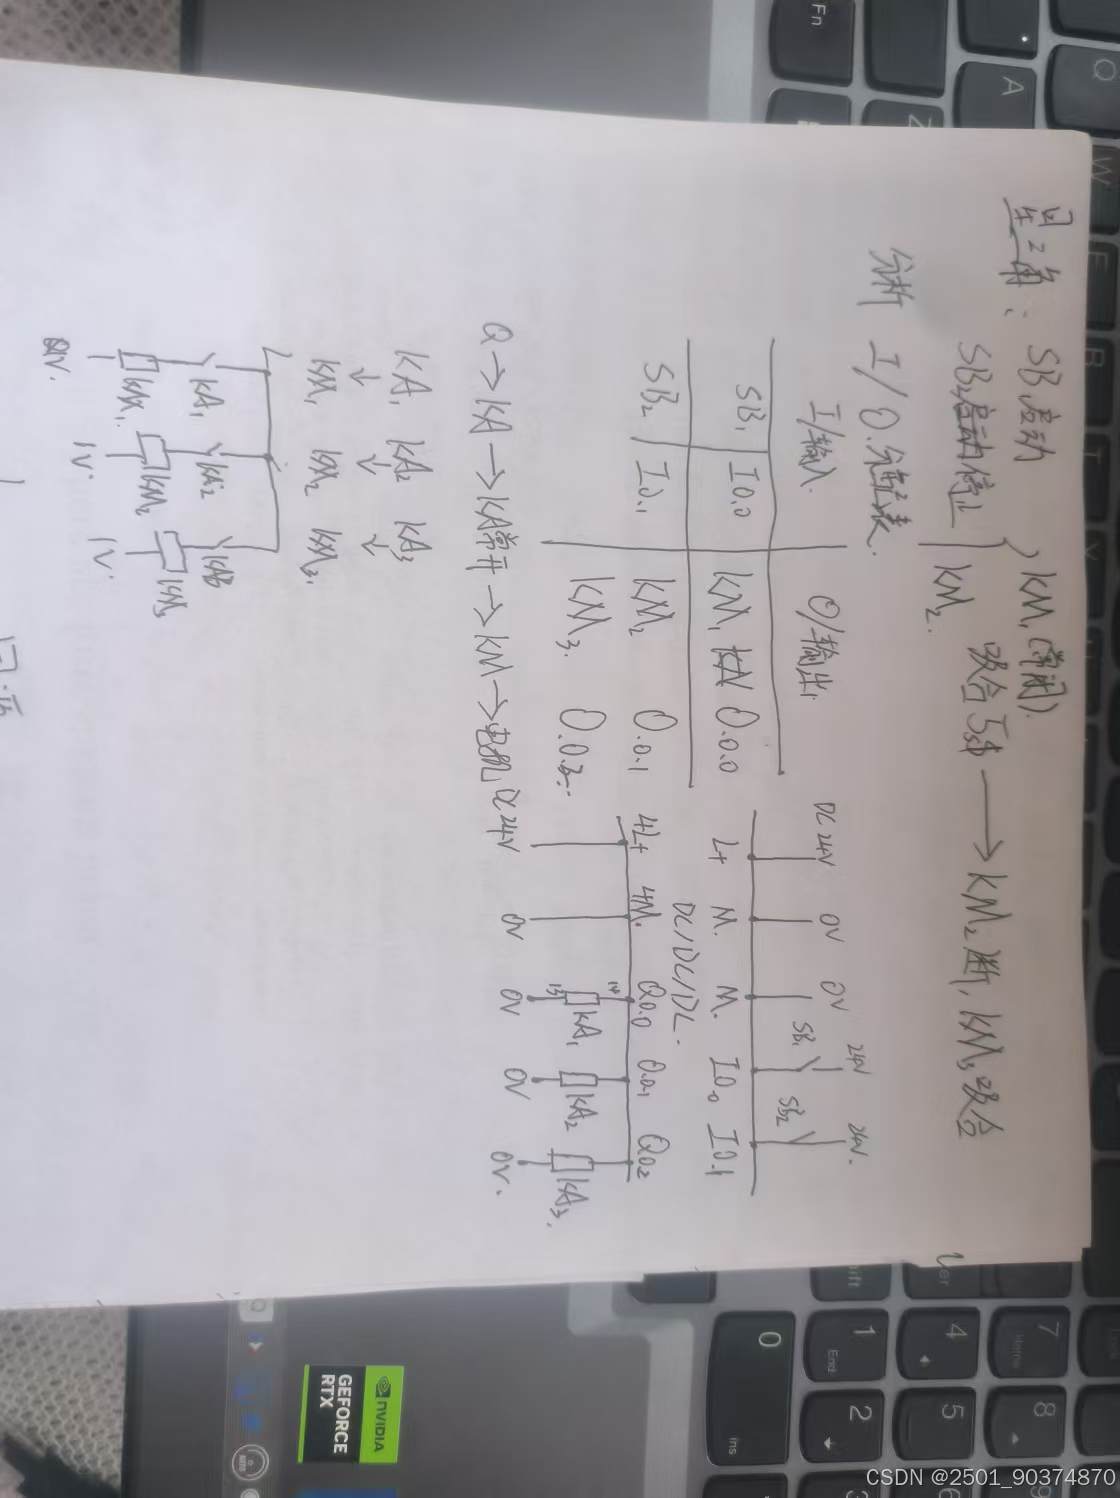 星三角: SB1启动 } KM1(常闭).
SB2启动停止 KM2. 吸合5s → KM2断, KM3吸合
分析 I/O.分配表.
I/输入. O/输出.
SB1 I0.0 KM1 KM 0.0.0
SB2 I0.1 KM2 0.0.1
KM3. 0.0.2
DC24V 0V 0V 24V 24V.
SB1 SB2
L+ M. M. I0.0 I0.1
DC/DC/DC.
4L+ 4M. Q0.0 0.0.1 Q0.2
14
13 KA1 KA2 KA3.
DC24V 0V 0V 0V 0V.
Q → KA → KA常开 → KM → 电机
KA1 KA2 KA3
↓ ↓ ↓
KM1 KM2 KM3.
L
KA1 KA2 KA3
KM1. KM2 KM3
0V. 1V. 1V.
Fn
A
Z
Q
W
E
0
Ins
1
End
2
4
5
7
Home
8
NVIDIA
GEFORCE
RTX
CSDN @2501_90374870